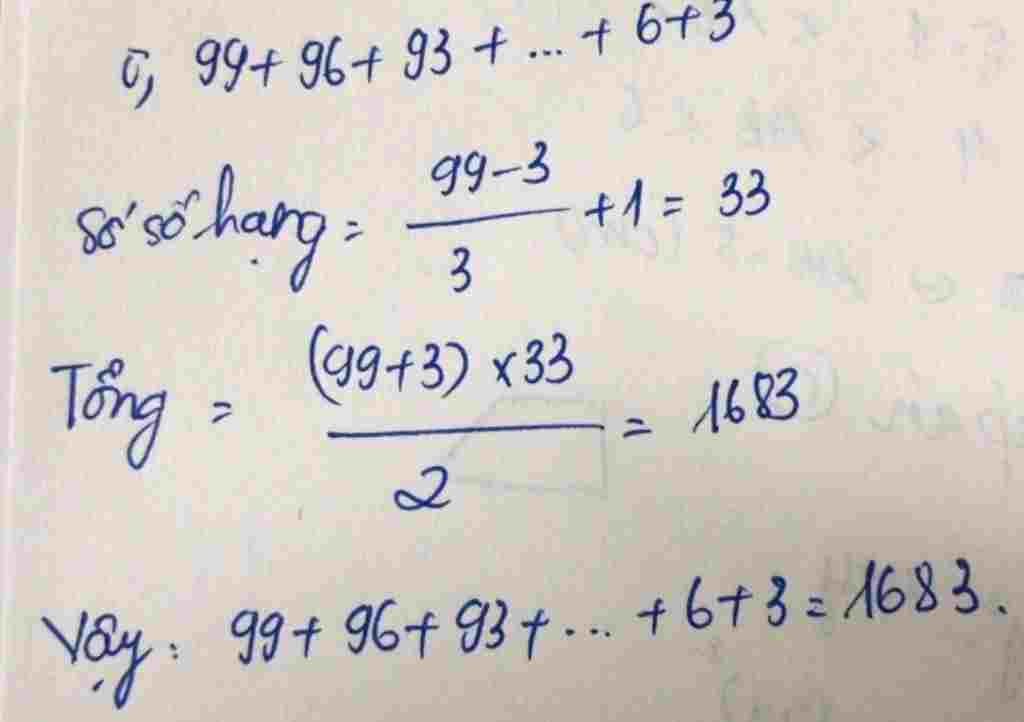 c, 99 + 96 + 93 + ... + 6 + 3
Số số hạng = (99 - 3)/3 + 1 = 33
Tổng = ((99 + 3) x 33)/2 = 1683
Vậy: 99 + 96 + 93 + ... + 6 + 3 = 1683.